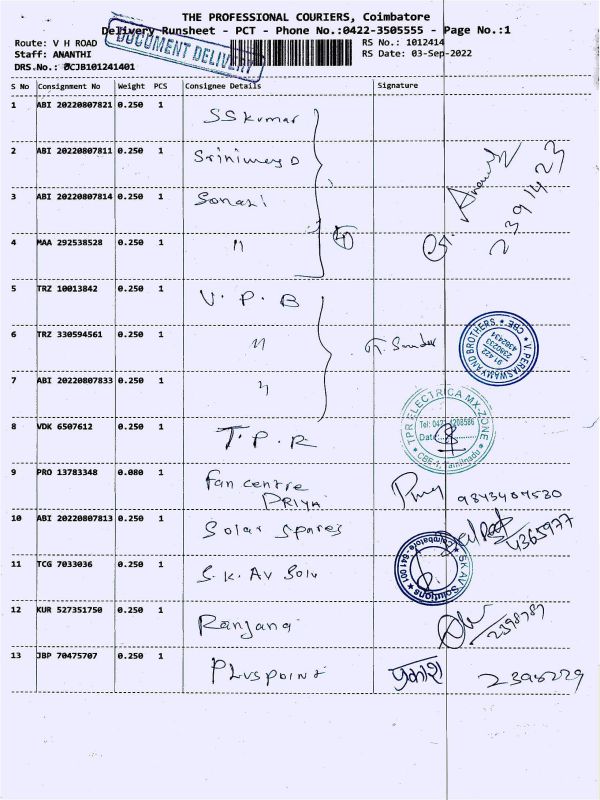 THE PROFESSIONAL COURIERS, Coimbatore
Delivery Runsheet - PCT - Phone No.:0422-3505555 - Page No.:1
DOCUMENT DELIVERY
Route: V H ROAD
RS No.: 1012414
Staff: ANANTHI
RS Date: 03-Sep-2022
DRS.No.: CJB101241401
S No Consignment No Weight PCS Consignee Details Signature
1 ABI 20220807821 0.250 1 SSkumar
2 ABI 20220807811 0.250 1
3 ABI 20220807814 0.250 1
4 MAA 292538528 0.250 1 "
5 TRZ 10013842 0.250 1 V.P.B
6 TRZ 330594561 0.250 1 "
V. PERIASWAMY AND BROTHERS. CBE
7 ABI 20220807833 0.250 1 "
8 VDK 6507612 0.250 1 T.P.R
TPR ELECTRICA MX-ZONE
Tel: 0422 4208586
Date:
CBE-1. Tamilnadu
9 PRO 13783348 0.080 1 Fan centre
PRIYA
10 ABI 20220807813 0.250 1 Solar Spares
4365977
11 TCG 7033036 0.250 1 S.K. AV Solu
SK AV Solutions Coimbatore-641 001
12 KUR 527351750 0.250 1 Ranjana
13 JBP 70475707 0.250 1 Pluspoint
प्रकाश